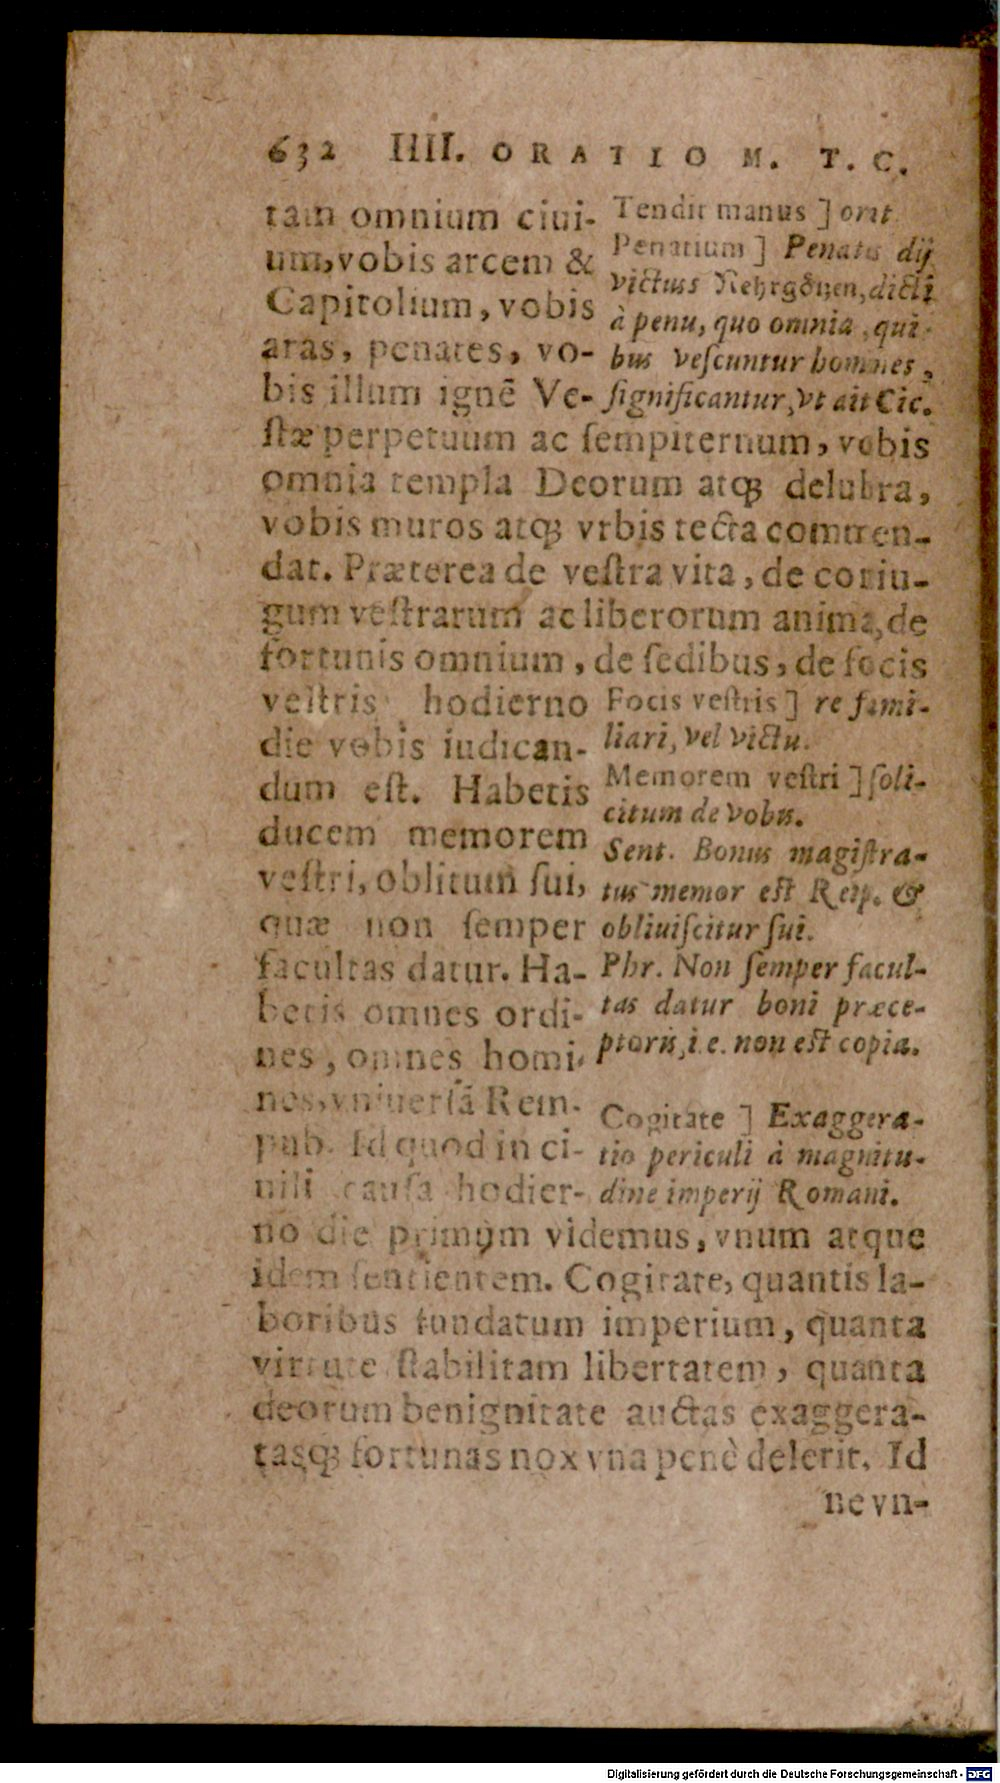 632 IIII. ORATIO M. T. C.
tam omnium ciui-
um, vobis arcem &
Capitolium, vobis
aras, penates, vo-
bis illum ignē Ve-
stæ perpetuum ac sempiternum, vobis
omnia templa Deorum atq; delubra,
vobis muros atq; vrbis tecta commen-
dat. Præterea de vestra vita, de coniu-
gum vestrarum ac liberorum anima, de
fortunis omnium, de sedibus, de focis
vestris, hodierno
die vobis iudican-
dum est. Habetis
ducem memorem
vestri, oblitum sui,
quæ non semper
facultas datur. Ha-
betis omnes ordi-
nes, omnes homi-
nes, vniuersā Rem-
pub. Id quod in ci-
uili causa hodier-
no die primùm videmus, vnum atque
idem sentientem. Cogitate, quantis la-
boribus fundatum imperium, quanta
virtute stabilitam libertatem, quanta
deorum benignitate auctas exaggera-
tasq; fortunas nox vna penè delerit. Id
ne vn-
Tendit manus ] orat.
Penatium ] Penates dij
victus dicti
à penu, quo omnia, qui-
bus vescuntur homines,
significantur, vt ait Cic.
Focis vestris ] re fami-
liari, vel victu.
Memorem vestri ] soli-
citum de vobis.
Sent. Bonus magistra-
tus memor est Reip. &
obliuiscitur sui.
Phr. Non semper facul-
tas datur boni præce-
ptoris, i. e. non est copia.
Cogitate ] Exaggera-
tio periculi à magnitu-
dine imperij Romani.
Digitalisierung gefördert durch die Deutsche Forschungsgemeinschaft - DFG